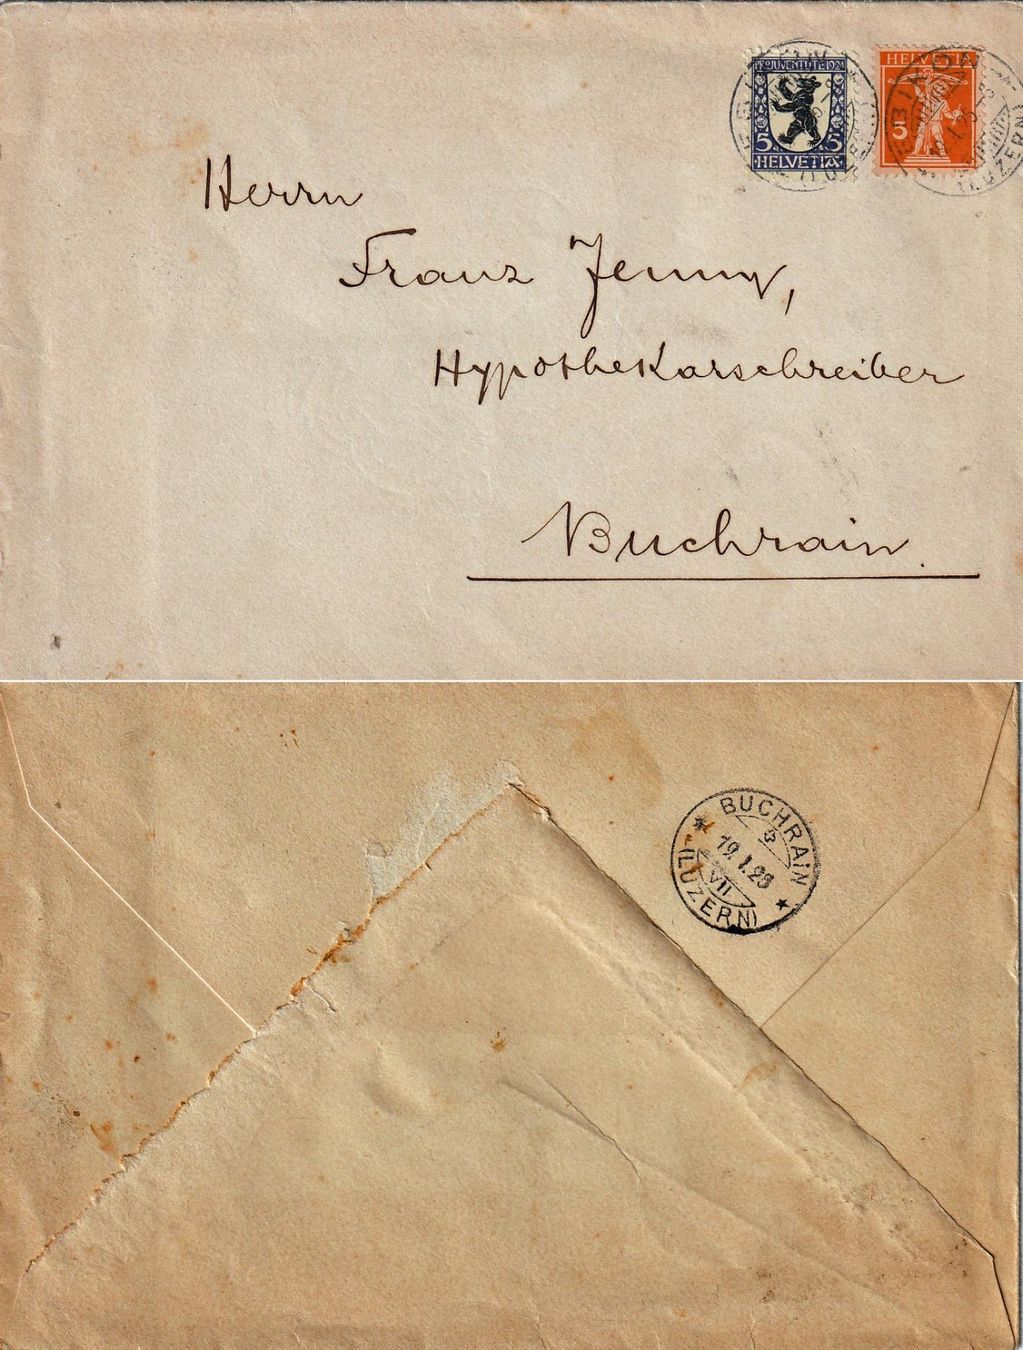 PRO JUVENTUTE 1924
5 5
HELVETIA
HELVETIA
5
EBIKON
(LUZERN)
Herrn
Franz Jenny,
Hypothekarschreiber
Buchrain.
BUCHRAIN
19.I.23
VII
(LUZERN)